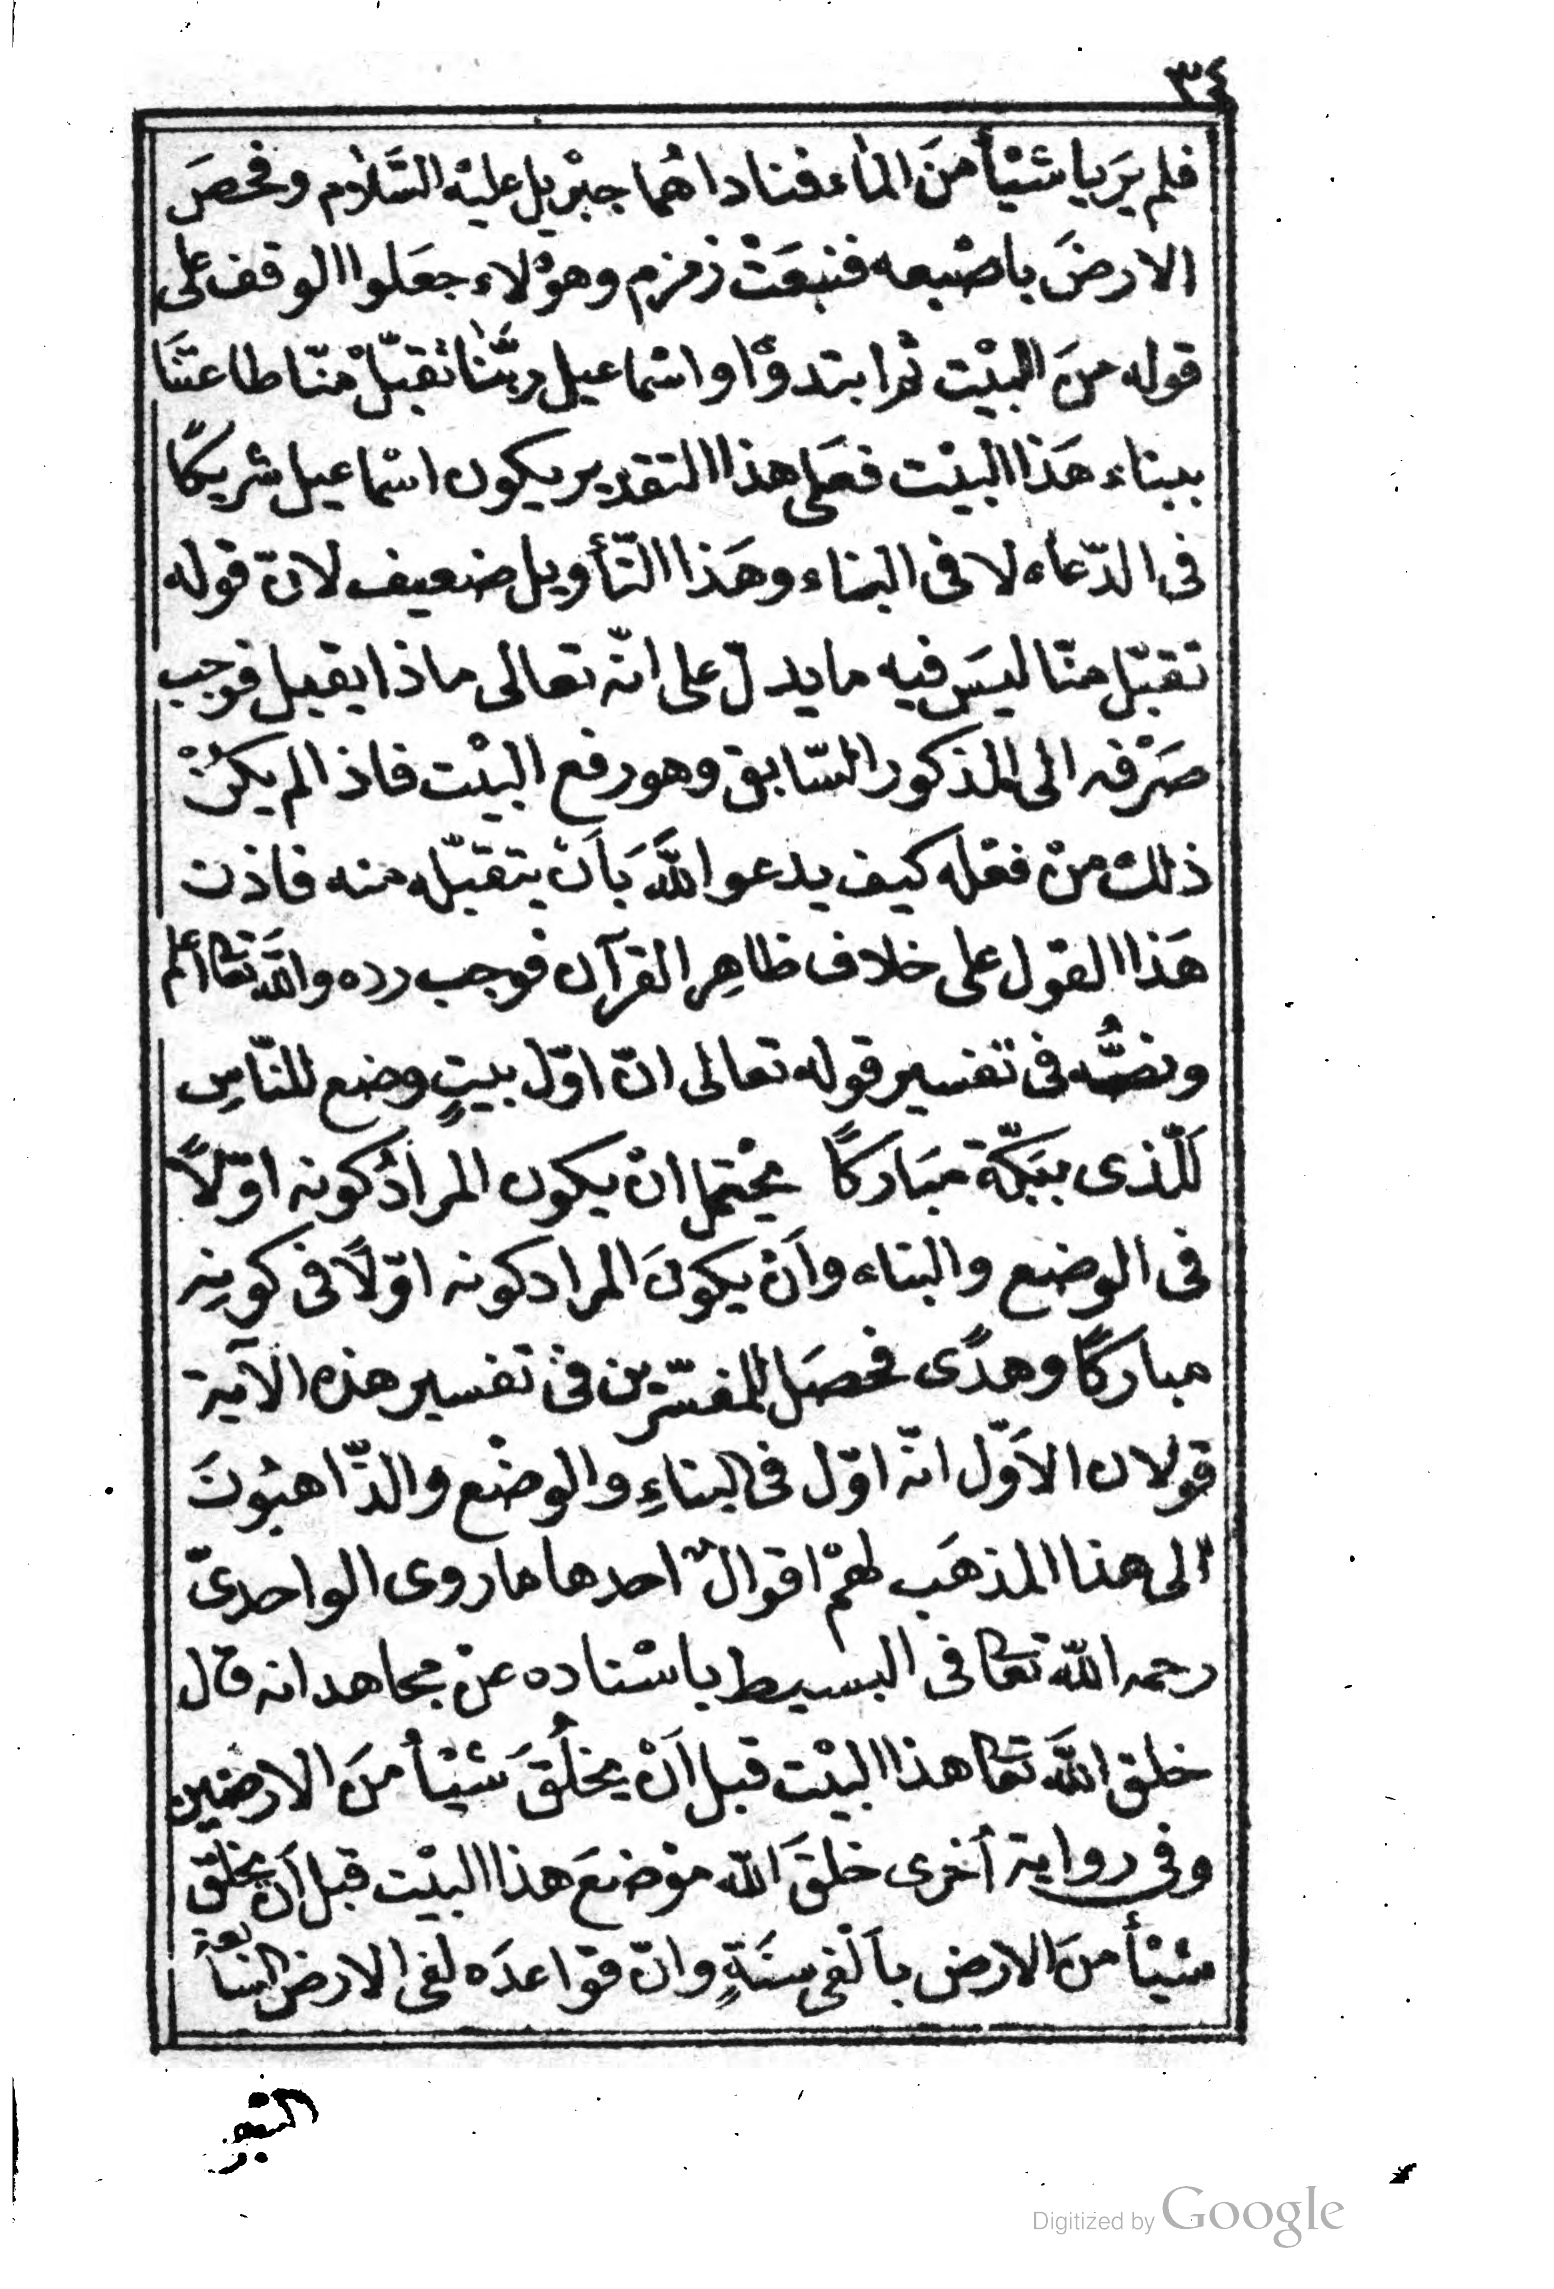 ٣٤
فلم يَرَيا شيْأً منَ الماء فناداهُما جبْريل عليْه السَّلام وفحصَ
الارضَ باصْبعه فنبعَتْ زمزم وهؤلاء جعَلوا الوقف على
قوله منَ البيْت ثمّ ابتدؤا واسْماعيل ربَّنا تقبّلْ منّا طاعتَنا
ببناء هَذا البيْت فعَلى هذا التقدير يكون اسْماعيل شريكًا
فى الدّعاء لا فى البناء وهَذا التّأويل ضعيف لانّ قوله
تقبّل منّا ليسَ فيه ما يدلّ على انّه تعالى ماذا يقبل فوجب
صَرْفه الى المذكور السّابق وهو رفع البيْت فاذا لم يكنْ
ذلك منْ فعْله كيف يدعو اللّٰهَ بَأنْ يتقبّله منه فاذن
هَذا القول على خلاف ظاهِر القرآن فوجب رده واللّٰه تعا اعلم
ونصُّه فى تفسير قوله تعالى انّ اوّل بيتٍ وضع للنّاسِ
لَلّذى ببَكّة مبَاركًا يحْتمل انْ يكون المرادُ كونه اوّلاً
فى الوضع والبناء وأنْ يكونَ المراد كونه اوّلاً فى كونِه
مباركًا وهدًى فحصَل للمفسّرين فى تفسير هذه الآية
قولان الأوّل انّه اوّل فى البناءِ والوضْع والذّاهبُونَ
الى هذا المذهَب لهمْ اقوالٌ احدها ما روى الواحدىّ
رحمه اللّه تعا فى البسيط باسْناده عنْ مجاهد انه قال
خلق اللّٰهَ تعا هذا البيْت قبل أنْ يخلُقَ شيْأً منَ الارضين
وفى رواية أخرى خلقَ اللّه موْضعَ هذا البيْت قبل أن يخلق
شيْأً منَ الارض بألْفى سنَةٍ وانّ قواعدَه لفى الارض السّابعة
Digitized by Google